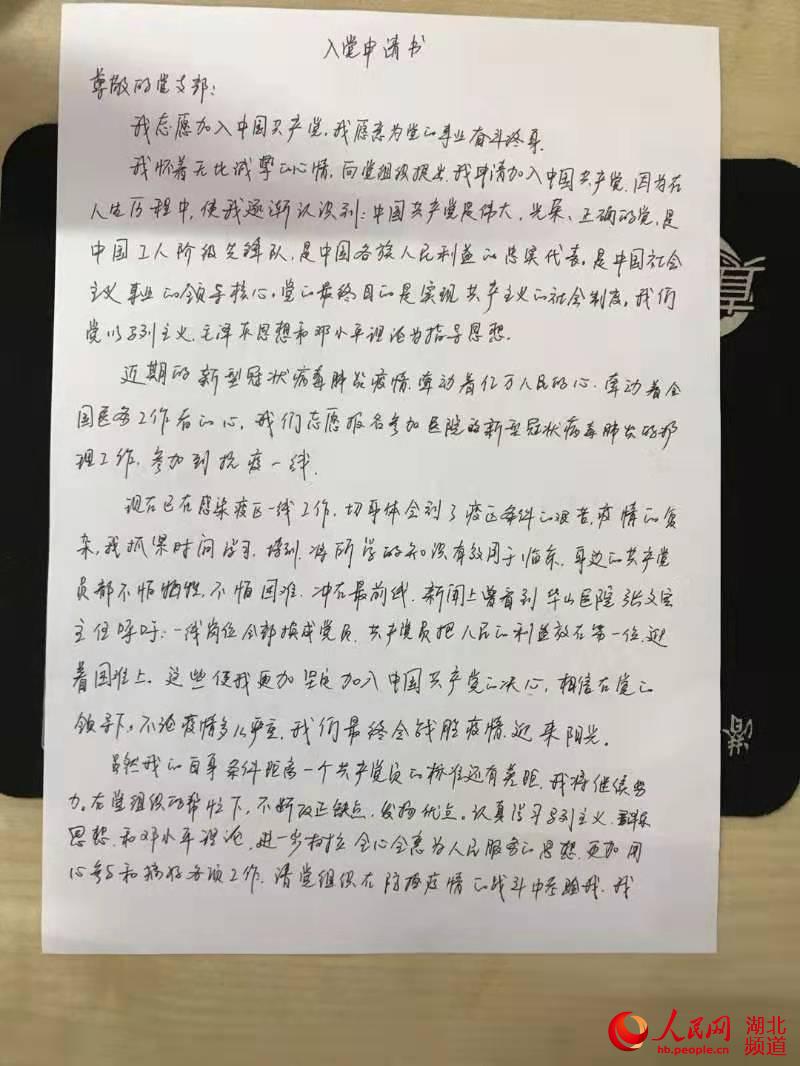 入党申请书
尊敬的党支部：
我志愿加入中国共产党，我愿意为党的事业奋斗终身.
我怀着无比诚挚的心情，向党组织提出，我申请加入中国共产党，因为在
人生历程中，使我逐渐认识到：中国共产党是伟大、光荣、正确的党，是
中国工人阶级先锋队，是中国各族人民利益的忠实代表，是中国社会
主义事业的领导核心。党的最终目的是实现共产主义的社会制度，我们
党以马列主义、毛泽东思想和邓小平理论为指导思想.
近期的新型冠状病毒肺炎疫情，牵动着亿万人民的心，牵动着全
国医务工作者的心，我们志愿报名参加医院的新型冠状病毒肺炎的护
理工作，参加到抗疫一线.
现在已在感染疫区一线工作，切身体会到了疫区条件的艰苦，疫情的复
杂，我抓紧时间学习，培训，将所学的知识有效用于临床，身边的共产党
员都不怕牺牲，不怕困难，冲在最前线，新闻上曾看到华山医院张文宏
主任呼吁：一线岗位全部换成党员，共产党员把人民的利益放在第一位，迎
着困难上。这些使我更加坚定加入中国共产党的决心，相信在党的
领导下，不论疫情多么严重，我们最终会战胜疫情，迎来阳光。
虽然我的自身条件距离一个共产党员的标准还有差距，我将继续努
力，在党组织的帮忙下，不断改正缺点，发扬优点。认真学习马列主义，毛泽东
思想，和邓小平理论，进一步树立全心全意为人民服务的思想，更加用
心参与和搞好各项工作，请党组织在防控疫情的战斗中考验我，我
直
港
人民网
hb.people.cn
湖北
频道